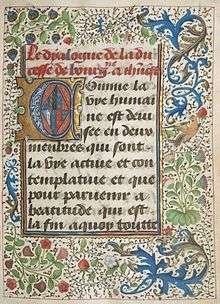 Le dyalogue de la du
cesse de bourgᵉ a ihūcrist
Comme la
vye humai
ne est deui
see en deux
membres qui sont
la vye actiue et con
templatiue et que
pour paruenir a
beatitude qui est
la fin a quoy toutte